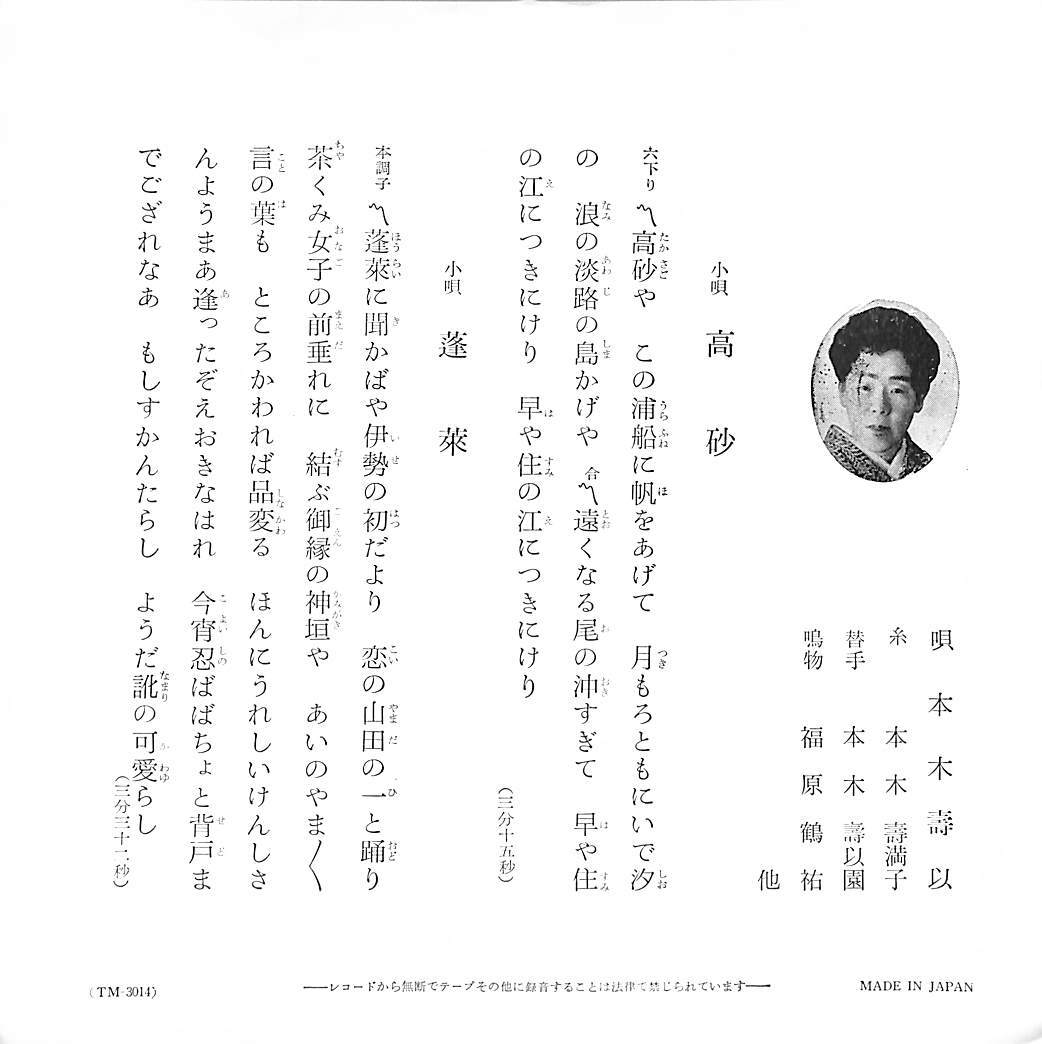 唄　本木壽以
糸　本木壽満子
替手　本木壽以園
鳴物　福原鶴祐
他
小唄　高砂
六下り　〽高砂や　この浦船に帆をあげて　月もろともにいで汐
の　浪の淡路の島かげや　合〽遠くなる尾の沖すぎて　早や住
の江につきにけり　早や住の江につきにけり
（三分十五秒）
小唄　蓬萊
本調子　〽蓬萊に聞かばや伊勢の初だより　恋の山田の一と踊り
茶くみ女子の前垂れに　結ぶ御縁の神垣や　あいのやま〱
言の葉も　ところかわれば品変る　ほんにうれしいけんしさ
んようまあ逢ったぞえおきなはれ　今宵忍ばばちょと背戸ま
でござれなあ　もしすかんたらし　ようだ訛の可愛らし
（三分三十二秒）
(TM-3014)
レコードから無断でテープその他に録音することは法律で禁じられています
MADE IN JAPAN